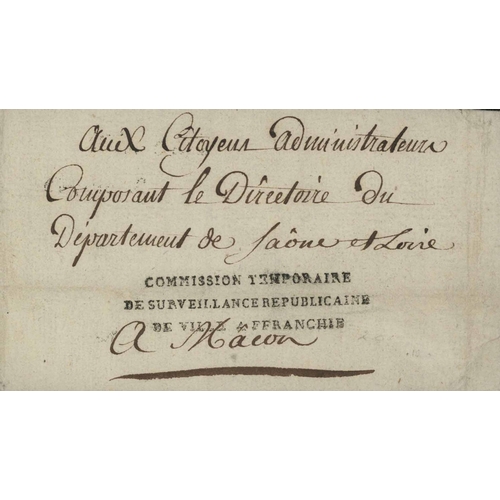 Aux Citoyens administrateurs
Composant le Dirèctoire du
Département de Saône et Loire
COMMISSION TEMPORAIRE
DE SURVEILLANCE REPUBLICAINE
DE VILLE AFFRANCHIE
A Mâcon